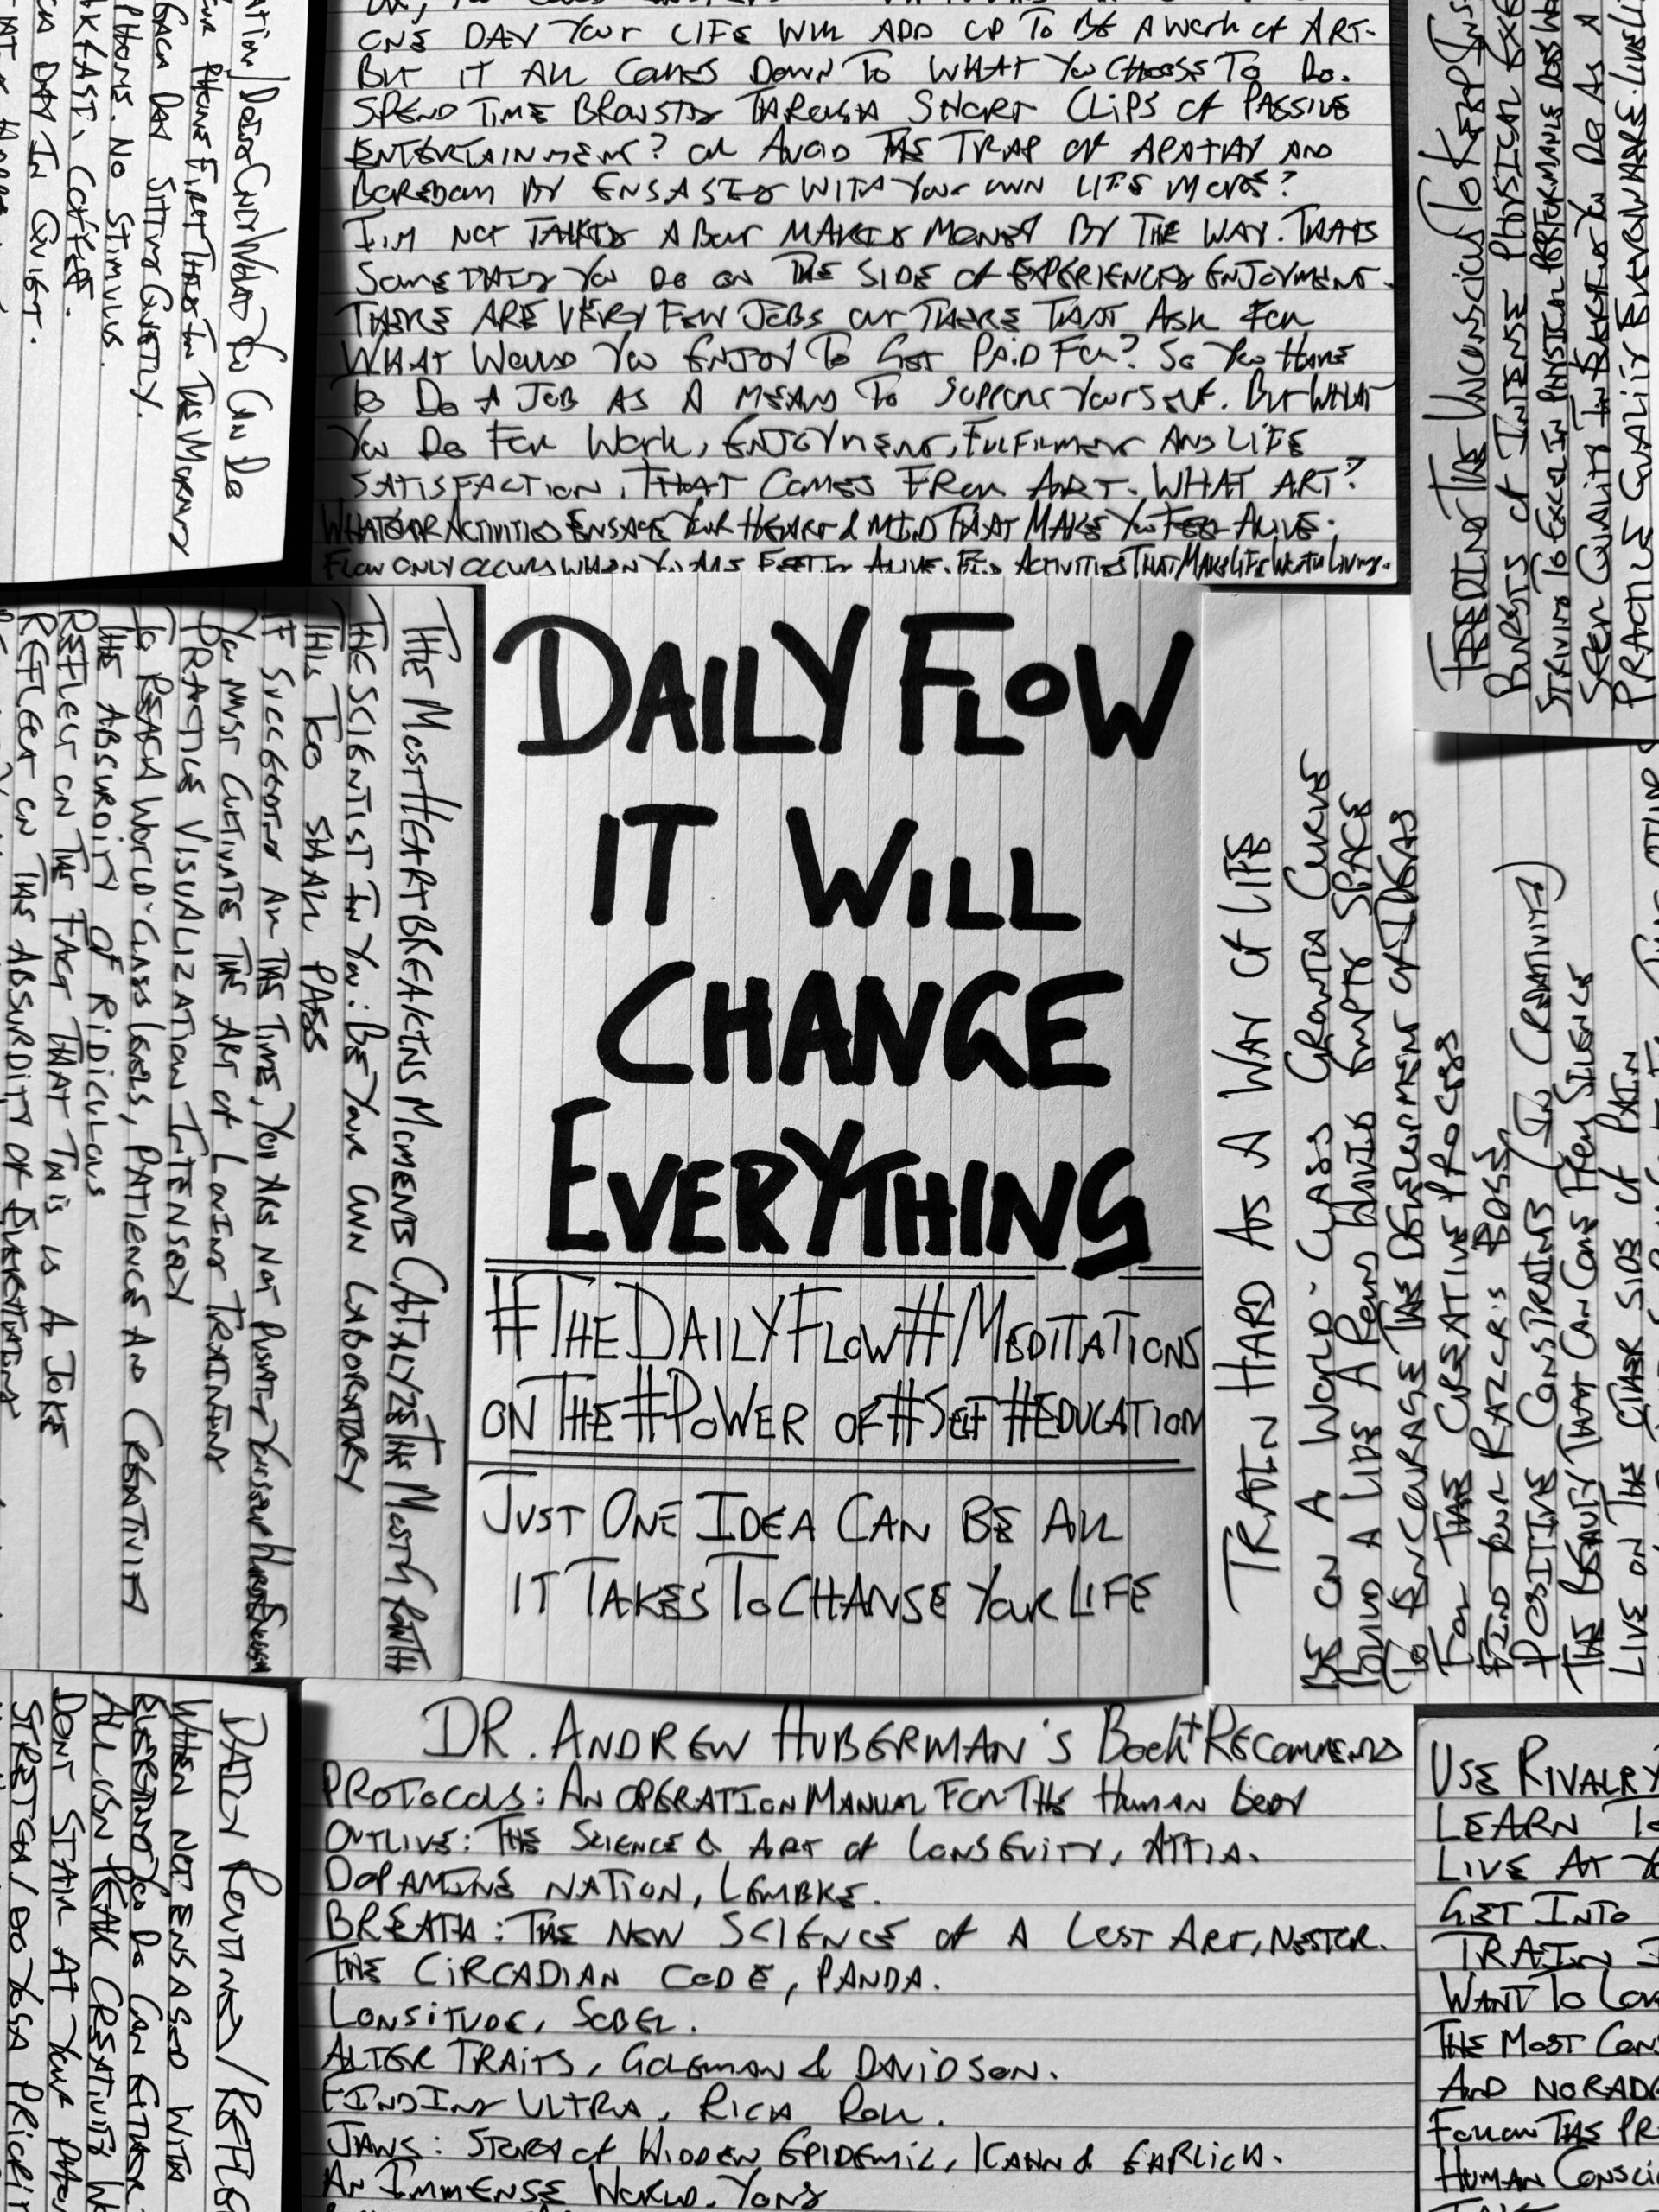 ONE DAY YOUR LIFE WILL ADD UP TO BE A WORK OF ART.
BUT IT ALL COMES DOWN TO WHAT YOU CHOOSE TO DO.
SPEND TIME BROWSING THROUGH SHORT CLIPS OF PASSIVE
ENTERTAINMENT? OR AVOID THE TRAP OF APATHY AND
BOREDOM BY ENGAGING WITH YOUR OWN LIFE MORE?
I'M NOT TALKING ABOUT MAKING MONEY BY THE WAY. THATS
SOMETHING YOU DO ON THE SIDE OF EXPERIENCING ENJOYMENT.
THERE ARE VERY FEW JOBS OUT THERE THAT ASK FOR
WHAT WOULD YOU ENJOY TO GET PAID FOR? SO YOU HAVE
TO DO A JOB AS A MEANS TO SUPPORT YOURSELF. BUT WHAT
YOU DO FOR WORK, ENJOYMENT, FULFILMENT AND LIFE
SATISFACTION, THAT COMES FROM ART. WHAT ART?
WHATEVER ACTIVITIES ENGAGE YOUR HEART & MIND THAT MAKE YOU FEEL ALIVE.
FLOW ONLY OCCURS WHEN YOU ARE FEELING ALIVE. FIND ACTIVITIES THAT MAKE LIFE WORTH LIVING.
WHAT YOU CAN DO
PHONE FIRST THING IN THE MORNING
EACH DAY SITTING QUIETLY.
PHONE. NO STIMULUS.
COFFEE.
DAY IN QUIET.
FEEDING THE UNCONSCIOUS TO KEEP
BURSTS OF INTENSE PHYSICAL
STRIVING TO EXCEL IN PHYSICAL PERFORMANCE DOES
SEEK QUALITY IN WHATEVER YOU DO AS A
PRACTICE QUALITY EVERYWHERE.
THE MOST HEARTBREAKING MOMENTS CATALYZE THE MOST GROWTH
THE SCIENTIST IN YOU: BE YOUR OWN LABORATORY
THIS TOO SHALL PASS
IF SUCCEEDING ALL THE TIME, YOU ARE NOT PUSHING YOURSELF HARD ENOUGH
YOU MUST CULTIVATE THE ART OF LOVING TRAINING
PRACTICE VISUALIZATION INTENSELY
TO REACH WORLD-CLASS LEVELS, PATIENCE AND CREATIVITY
THE ABSURDITY OF RIDICULOUS
REFLECT ON THE FACT THAT THIS IS A JOKE
REFLECT ON THE ABSURDITY OF EVERYTHING
DAILY FLOW
IT WILL
CHANGE
EVERYTHING
#THEDAILYFLOW#MEDITATIONS
ON THE #POWER OF #SELF #EDUCATION
JUST ONE IDEA CAN BE ALL
IT TAKES TO CHANGE YOUR LIFE
TRAIN HARD AS A WAY OF LIFE
BE ON A WORLD-CLASS GROWTH CURVE
BUILD A LIFE AROUND EMPTY SPACE
TO ENCOURAGE THE DEVELOPMENT OF IDEAS
FOR THE CREATIVE PROCESS
FIND OUR RAZOR'S EDGE
POSITIVE CONSTRAINTS (IN CREATIVITY)
THE BEAUTY THAT CAN COME FROM SILENCE
LIVE ON THE OTHER SIDE OF PAIN
DAILY ROUTINES/REFLE
WHEN NOT ENGAGED WITH
EVERYTHING YOU DO CAN EITHER
ALL YOUR PEAK CREATIVITY
DONT STARE AT YOUR PHONE
STRETCH/DO YOGA PRIORIT
DR. ANDREW HUBERMAN'S BOOK RECOMMENDS
PROTOCOLS: AN OPERATION MANUAL FOR THE HUMAN BODY
OUTLIVE: THE SCIENCE & ART OF LONGEVITY, ATTIA.
DOPAMINE NATION, LEMBKE.
BREATH: THE NEW SCIENCE OF A LOST ART, NESTOR.
THE CIRCADIAN CODE, PANDA.
LONGITUDE, SOBEL.
ALTER TRAITS, GOLEMAN & DAVIDSON.
FINDING ULTRA, RICH ROLL.
JAWS: STORY OF HIDDEN EPIDEMIC, KAHN & EARLICH.
AN IMMENSE WORLD. YONG
USE RIVALRY
LEARN TO
LIVE AT
GET INTO
TRAIN
WANT TO
THE MOST
AND
FOLLOW THE
HUMAN